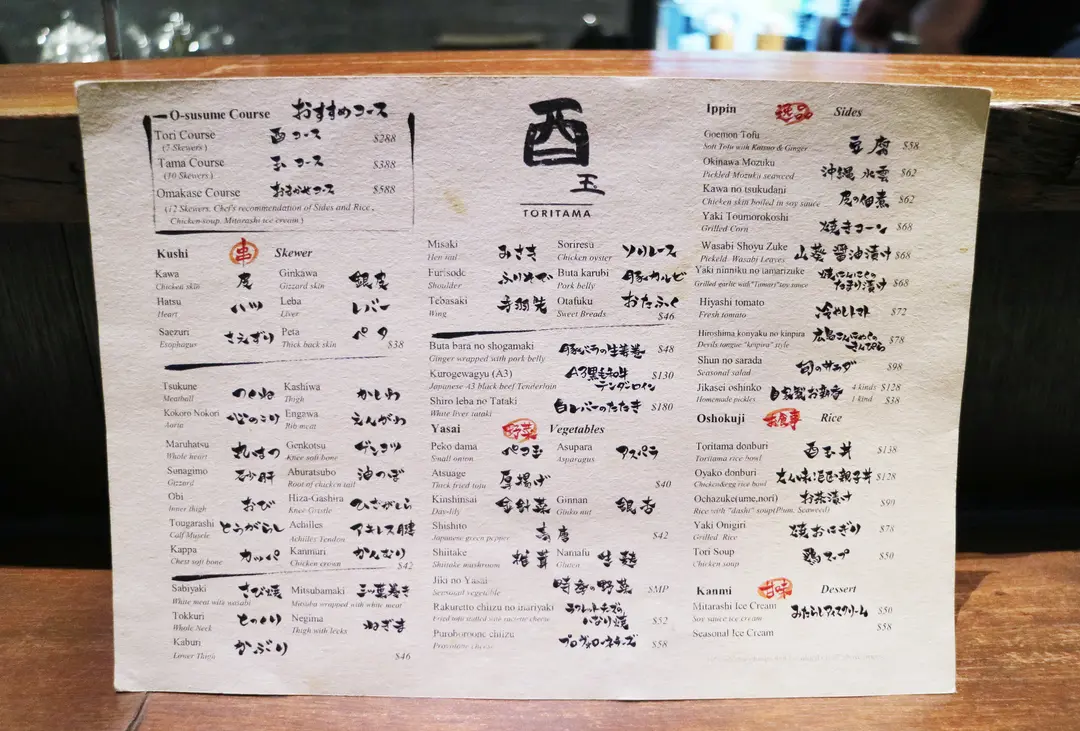 O-susume Course おすすめコース
Tori Course 酉コース $288
(7 Skewers)
Tama Course 玉コース $388
(10 Skewers)
Omakase Course おまかせコース $588
(12 Skewers, Chef's recommendation of Sides and Rice,
Chicken soup, Mitarashi ice cream)
Kushi 串 Skewer
Kawa 皮 Ginkawa 銀皮
Chicken skin Gizzard skin
Hatsu ハツ Leba レバー
Heart Liver
Saezuri さえずり Peta ペタ
Esophagus Thick back skin $38
Tsukune つくね Kashiwa かしわ
Meatball Thigh
Kokoro Nokori 心のこり Engawa えんがわ
Aorta Rib meat
Maruhatsu 丸はつ Genkotsu ゲンコツ
Whole heart Knee soft bone
Sunagimo 砂肝 Aburatsubo 油つぼ
Gizzard Root of chicken tail
Obi おび Hiza-Gashira ひざがしら
Inner thigh Knee Gristle
Tougarashi とうがらし Achilles アキレス腱
Calf Muscle Achilles Tendon
Kappa カッパ Kanmuri かんむり
Chest soft bone Chicken crown $42
Sabiyaki さび焼 Mitsubamaki 三つ葉巻き
White meat with wasabi Mitsuba wrapped with white meat
Tokkuri とっくり Negima ねぎま
Whole Neck Thigh with leeks
Kaburi かぶり
Lower Thigh $46
酉
玉
TORITAMA
Misaki みさき Soriresu ソリレース
Hen tail Chicken oyster
Furisode ふりそで Buta karubi 豚カルビ
Shoulder Pork belly
Tebasaki 手羽先 Otafuku おたふく
Wing Sweet Breads $46
Buta bara no shogamaki 豚バラの生姜巻 $48
Ginger wrapped with pork belly
Kurogewagyu (A3) A3黒毛和牛 $130
Japanese A3 black beef Tenderloin テンダーロイン
Shiro leba no Tataki 白レバーのたたき $180
White liver tataki
Yasai 野菜 Vegetables
Peko dama ペコ玉 Asupara アスパラ
Small onion Asparagus
Atsuage 厚揚げ
Thick fried tofu $40
Kinshinsai 金針菜 Ginnan 銀杏
Day-lily Ginko nut
Shishito
Japanese green pepper $42
Shiitake 椎茸 Namafu 生麩
Shiitake mushroom Gluten
Jiki no Yasai 時季の野菜 $MP
Seasonal vegetable
Rakuretto chiizu no inariyaki ラクレットチーズ
Fried tofu stuffed with raclette cheese いなり焼 $52
Puroboroone chiizu プロヴォローネチーズ $58
Provolone cheese
Ippin 逸品 Sides
Goemon Tofu 豆腐 $58
Soft Tofu with Katsuo & Ginger
Okinawa Mozuku 沖縄 水雲 $62
Pickled Mozuku seaweed
Kawa no tsukudani 皮の佃煮 $62
Chicken skin boiled in soy sauce
Yaki Toumorokoshi 焼きコーン $68
Grilled Corn
Wasabi Shoyu Zuke 山葵 醤油漬け $68
Pickeld Wasabi Leaves
Yaki ninniku no tamarizuke 焼にんにくの
Grilled garlic with "Tamari" soy sauce たまり漬け $68
Hiyashi tomato 冷やしトマト $72
Fresh tomato
Hiroshima konyaku no kinpira 広島こんにゃくの
Devils tongue "kinpira" style きんぴら $78
Shun no sarada 旬のサラダ $98
Seasonal salad
Jikasei oshinko 自家製お新香 4 kinds $128
Homemade pickles 1 kind $38
Oshokuji お食事 Rice
Toritama donburi 酉玉丼 $138
Toritama rice bowl
Oyako donburi 親子丼 $128
Chicken&egg rice bowl
Ochazuke(ume,nori) お茶漬け $90
Rice with "dashi" soup(Plum, Seaweed)
Yaki Onigiri 焼おにぎり $78
Grilled Rice
Tori Soup 鶏スープ $50
Chicken soup
Kanmi 甘味 Dessert
Mitarashi Ice Cream みたらしアイスクリーム $50
Soy sauce ice cream
Seasonal Ice Cream $58